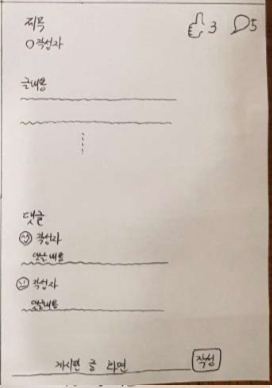 제목 3 5
작성자
글내용
댓글
작성자
댓글내용
작성자
댓글내용
게시판 글 화면 작성